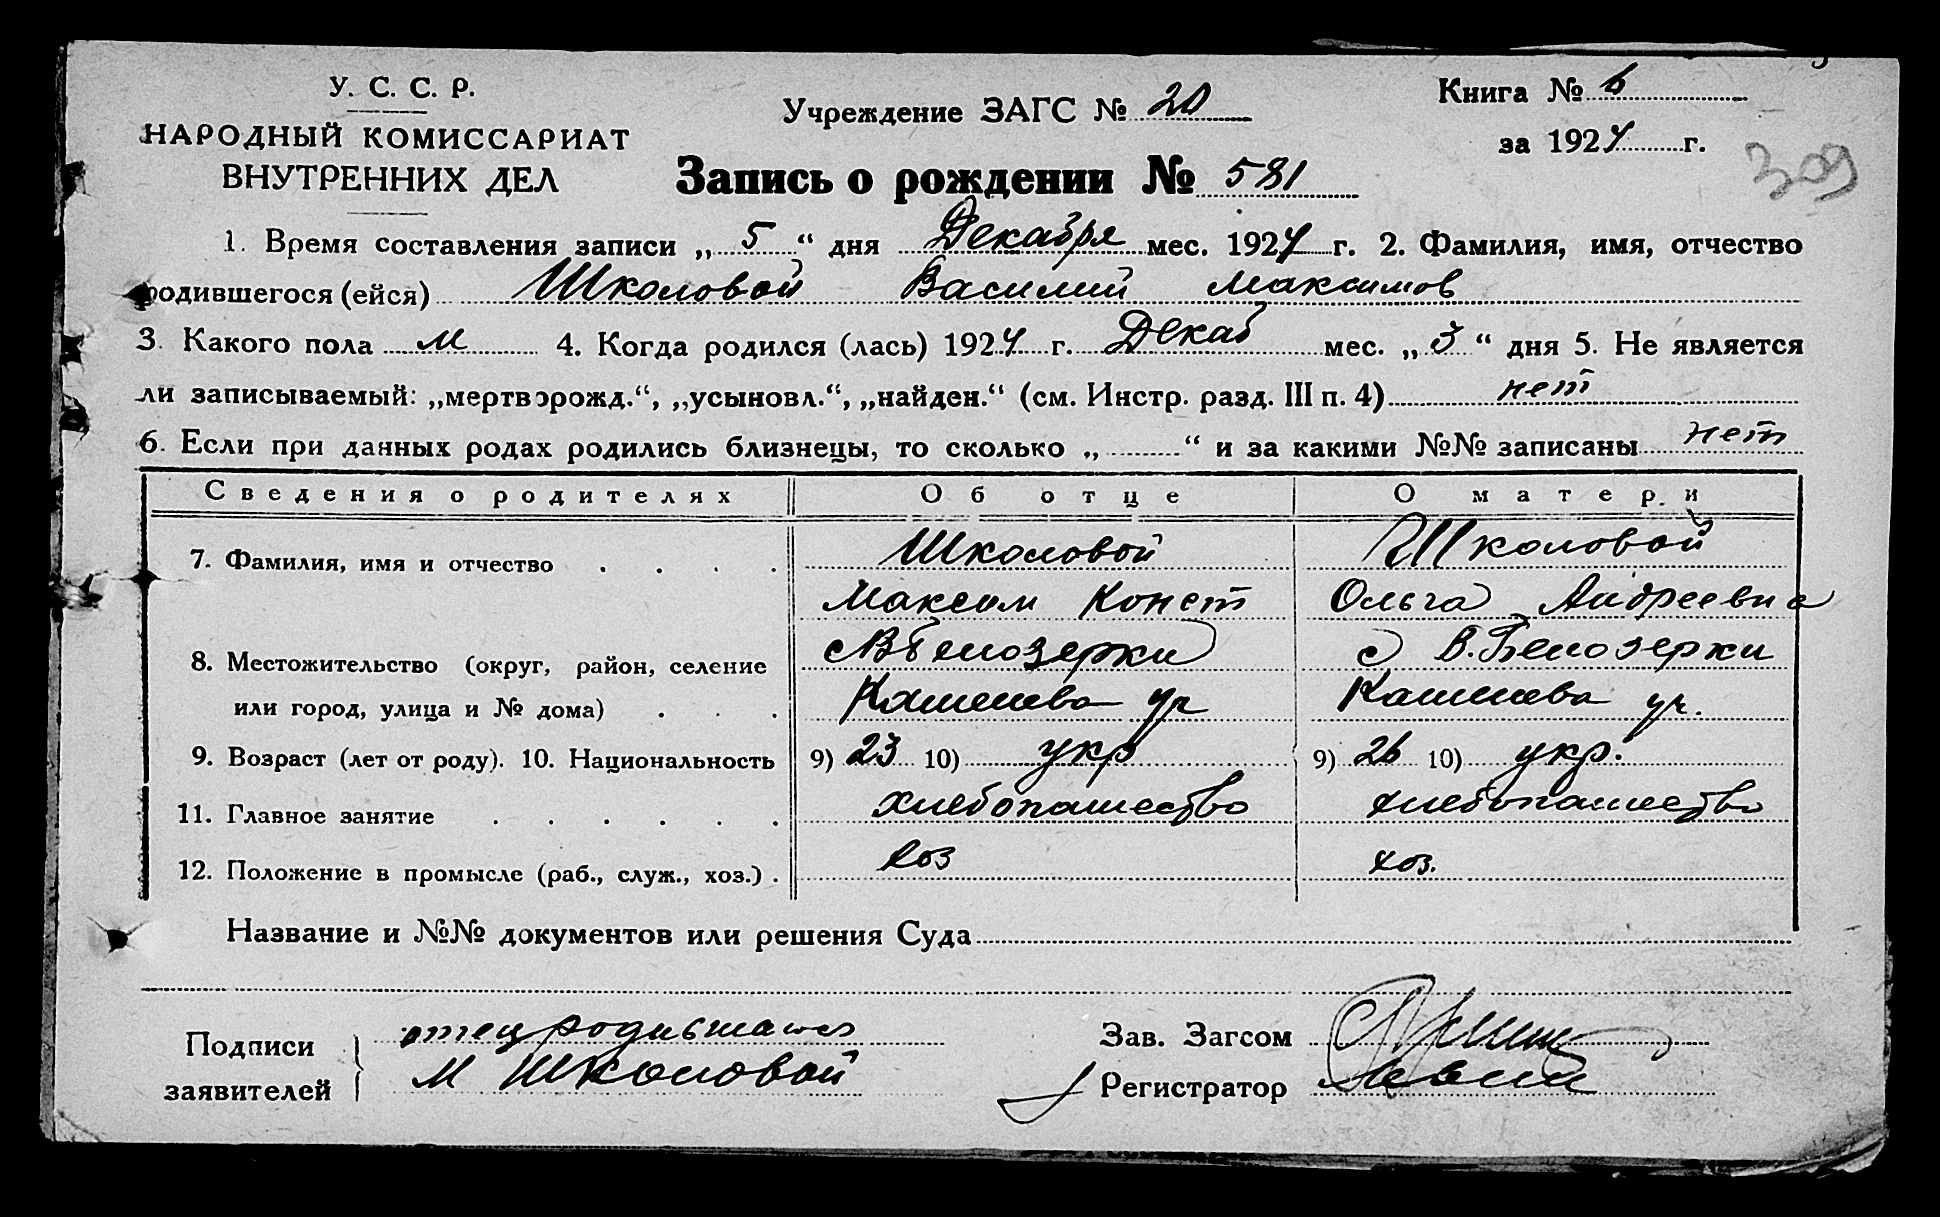 У. С. С. Р.
НАРОДНЫЙ КОМИССАРИАТ
ВНУТРЕННИХ ДЕЛ
Учреждение ЗАГС № 20
Книга № 6
за 1924 г.
309
Запись о рождении № 581
1. Время составления записи „ 5 “ дня Декабря мес. 1924 г. 2. Фамилия, имя, отчество
родившегося (ейся) Школовой Василий Максимов
3. Какого пола м 4. Когда родился (лась) 1924 г. Декаб мес. „ 3 “ дня 5. Не является
ли записываемый: „мертворожд.“, „усыновл.“, „найден.“ (см. Инстр. разд. III п. 4) нет
6. Если при данных родах родились близнецы, то сколько „ “ и за какими №№ записаны нет
Сведения о родителях Об отце О матери
7. Фамилия, имя и отчество Школовой Школовой
Максим Конст Ольга Андреевна
8. Местожительство (округ, район, селение с В Белозерки с В. Белозерки
или город, улица и № дома)
9. Возраст (лет от роду). 10. Национальность 9) 23 10) укр 9) 26 10) укр.
11. Главное занятие хлебопашество хлебопашество
12. Положение в промысле (раб., служ., хоз.) хоз хоз.
Название и №№ документов или решения Суда
Подписи заявителей отец
М Школовой
Зав. Загсом
Регистратор